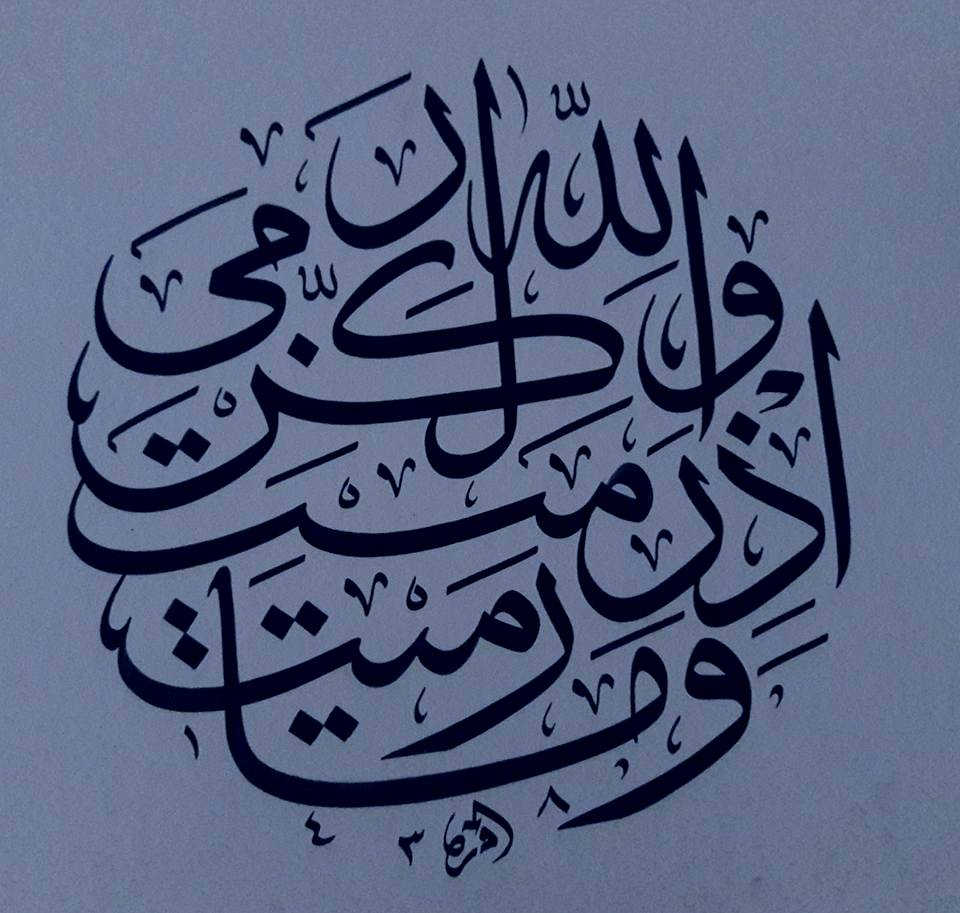 وَمَا رَمَيْتَ
اِذْ رَمَيْتَ
وَلٰكِنَّ اللّٰهَ رَمٰى
١٤٣٨